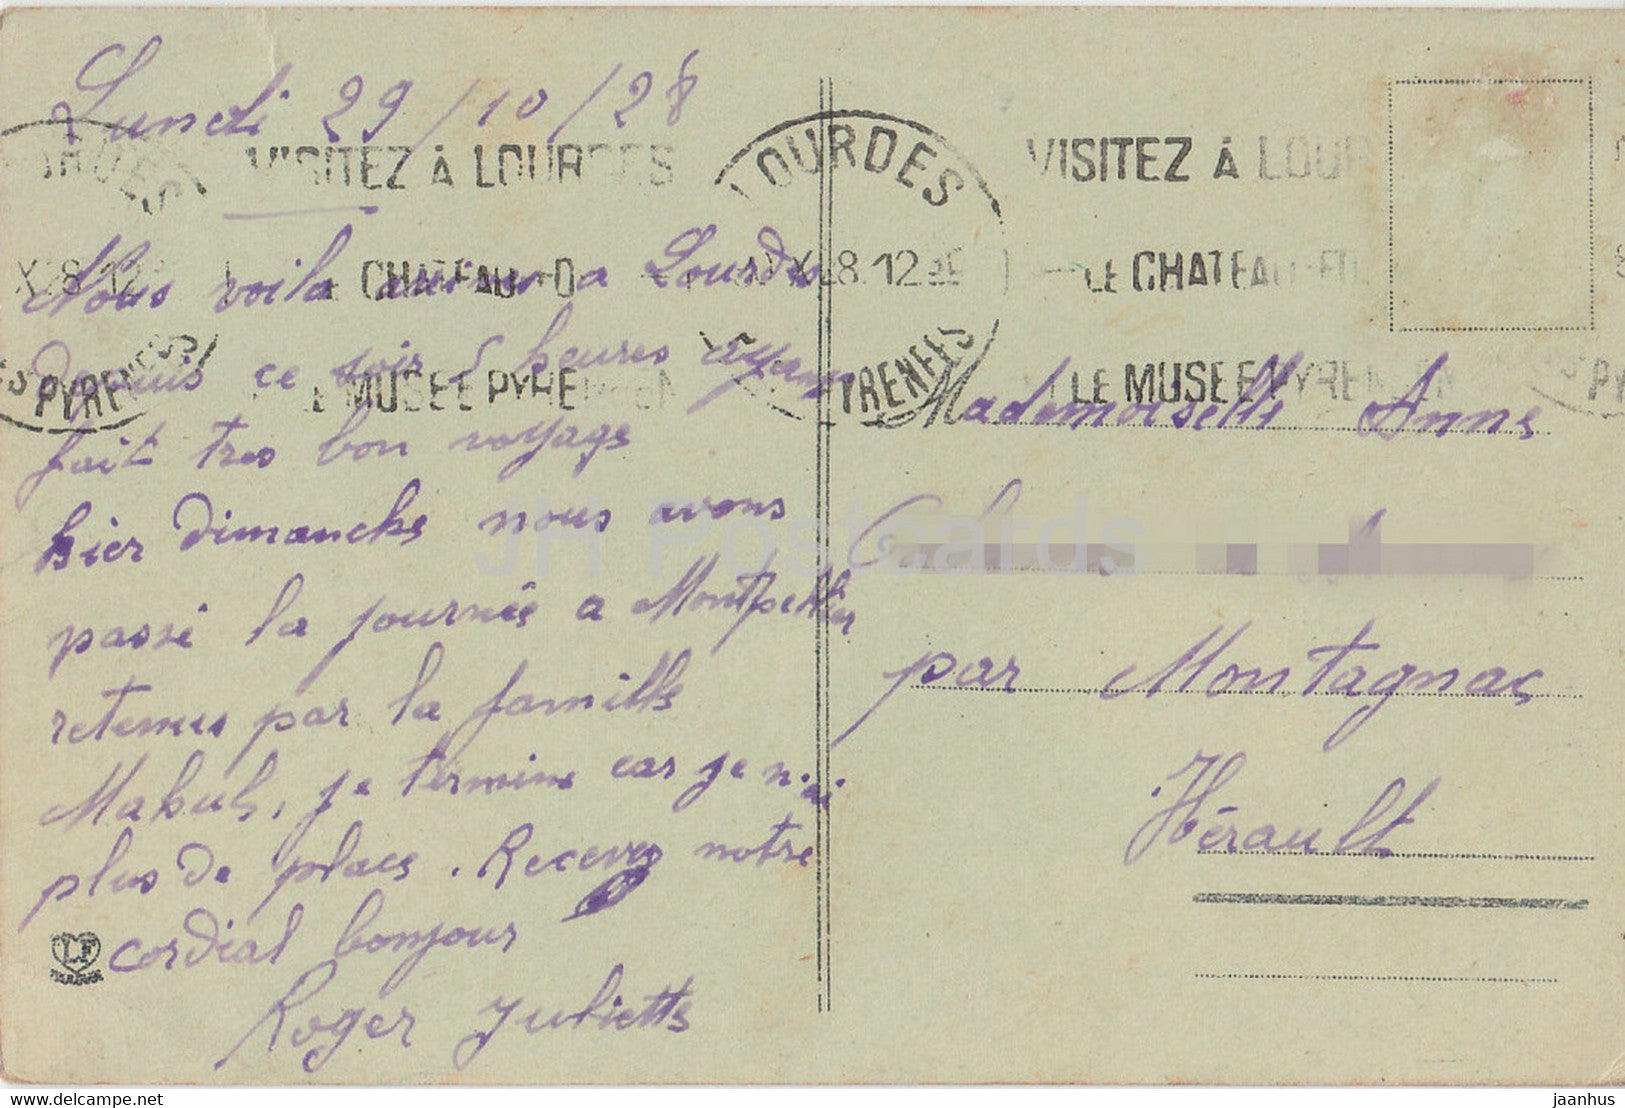 Lundi 29/10/28
VISITEZ À LOURDES
LE CHATEAU-FORT
LE MUSEE PYRENEEN
LOURDES
PYRENEES
VISITEZ À LOUR
LE CHATEAU-FO
LE MUSEE PYRENEEN
Nous voila a Lourdes
Depuis ce soir 5 heures ayant
fait tres bon voyage
hier Dimanche nous avons
passé la journée a Montpellier
retenus par la famille
Mabul, je termine car je n'ai
plus De place. Recevez notre
corDial bonjour
Roger Juliette
LF
Mademoiselle Anne
par Montagnac
Hérault
JH Postcards
delcampe.net
jaanhus